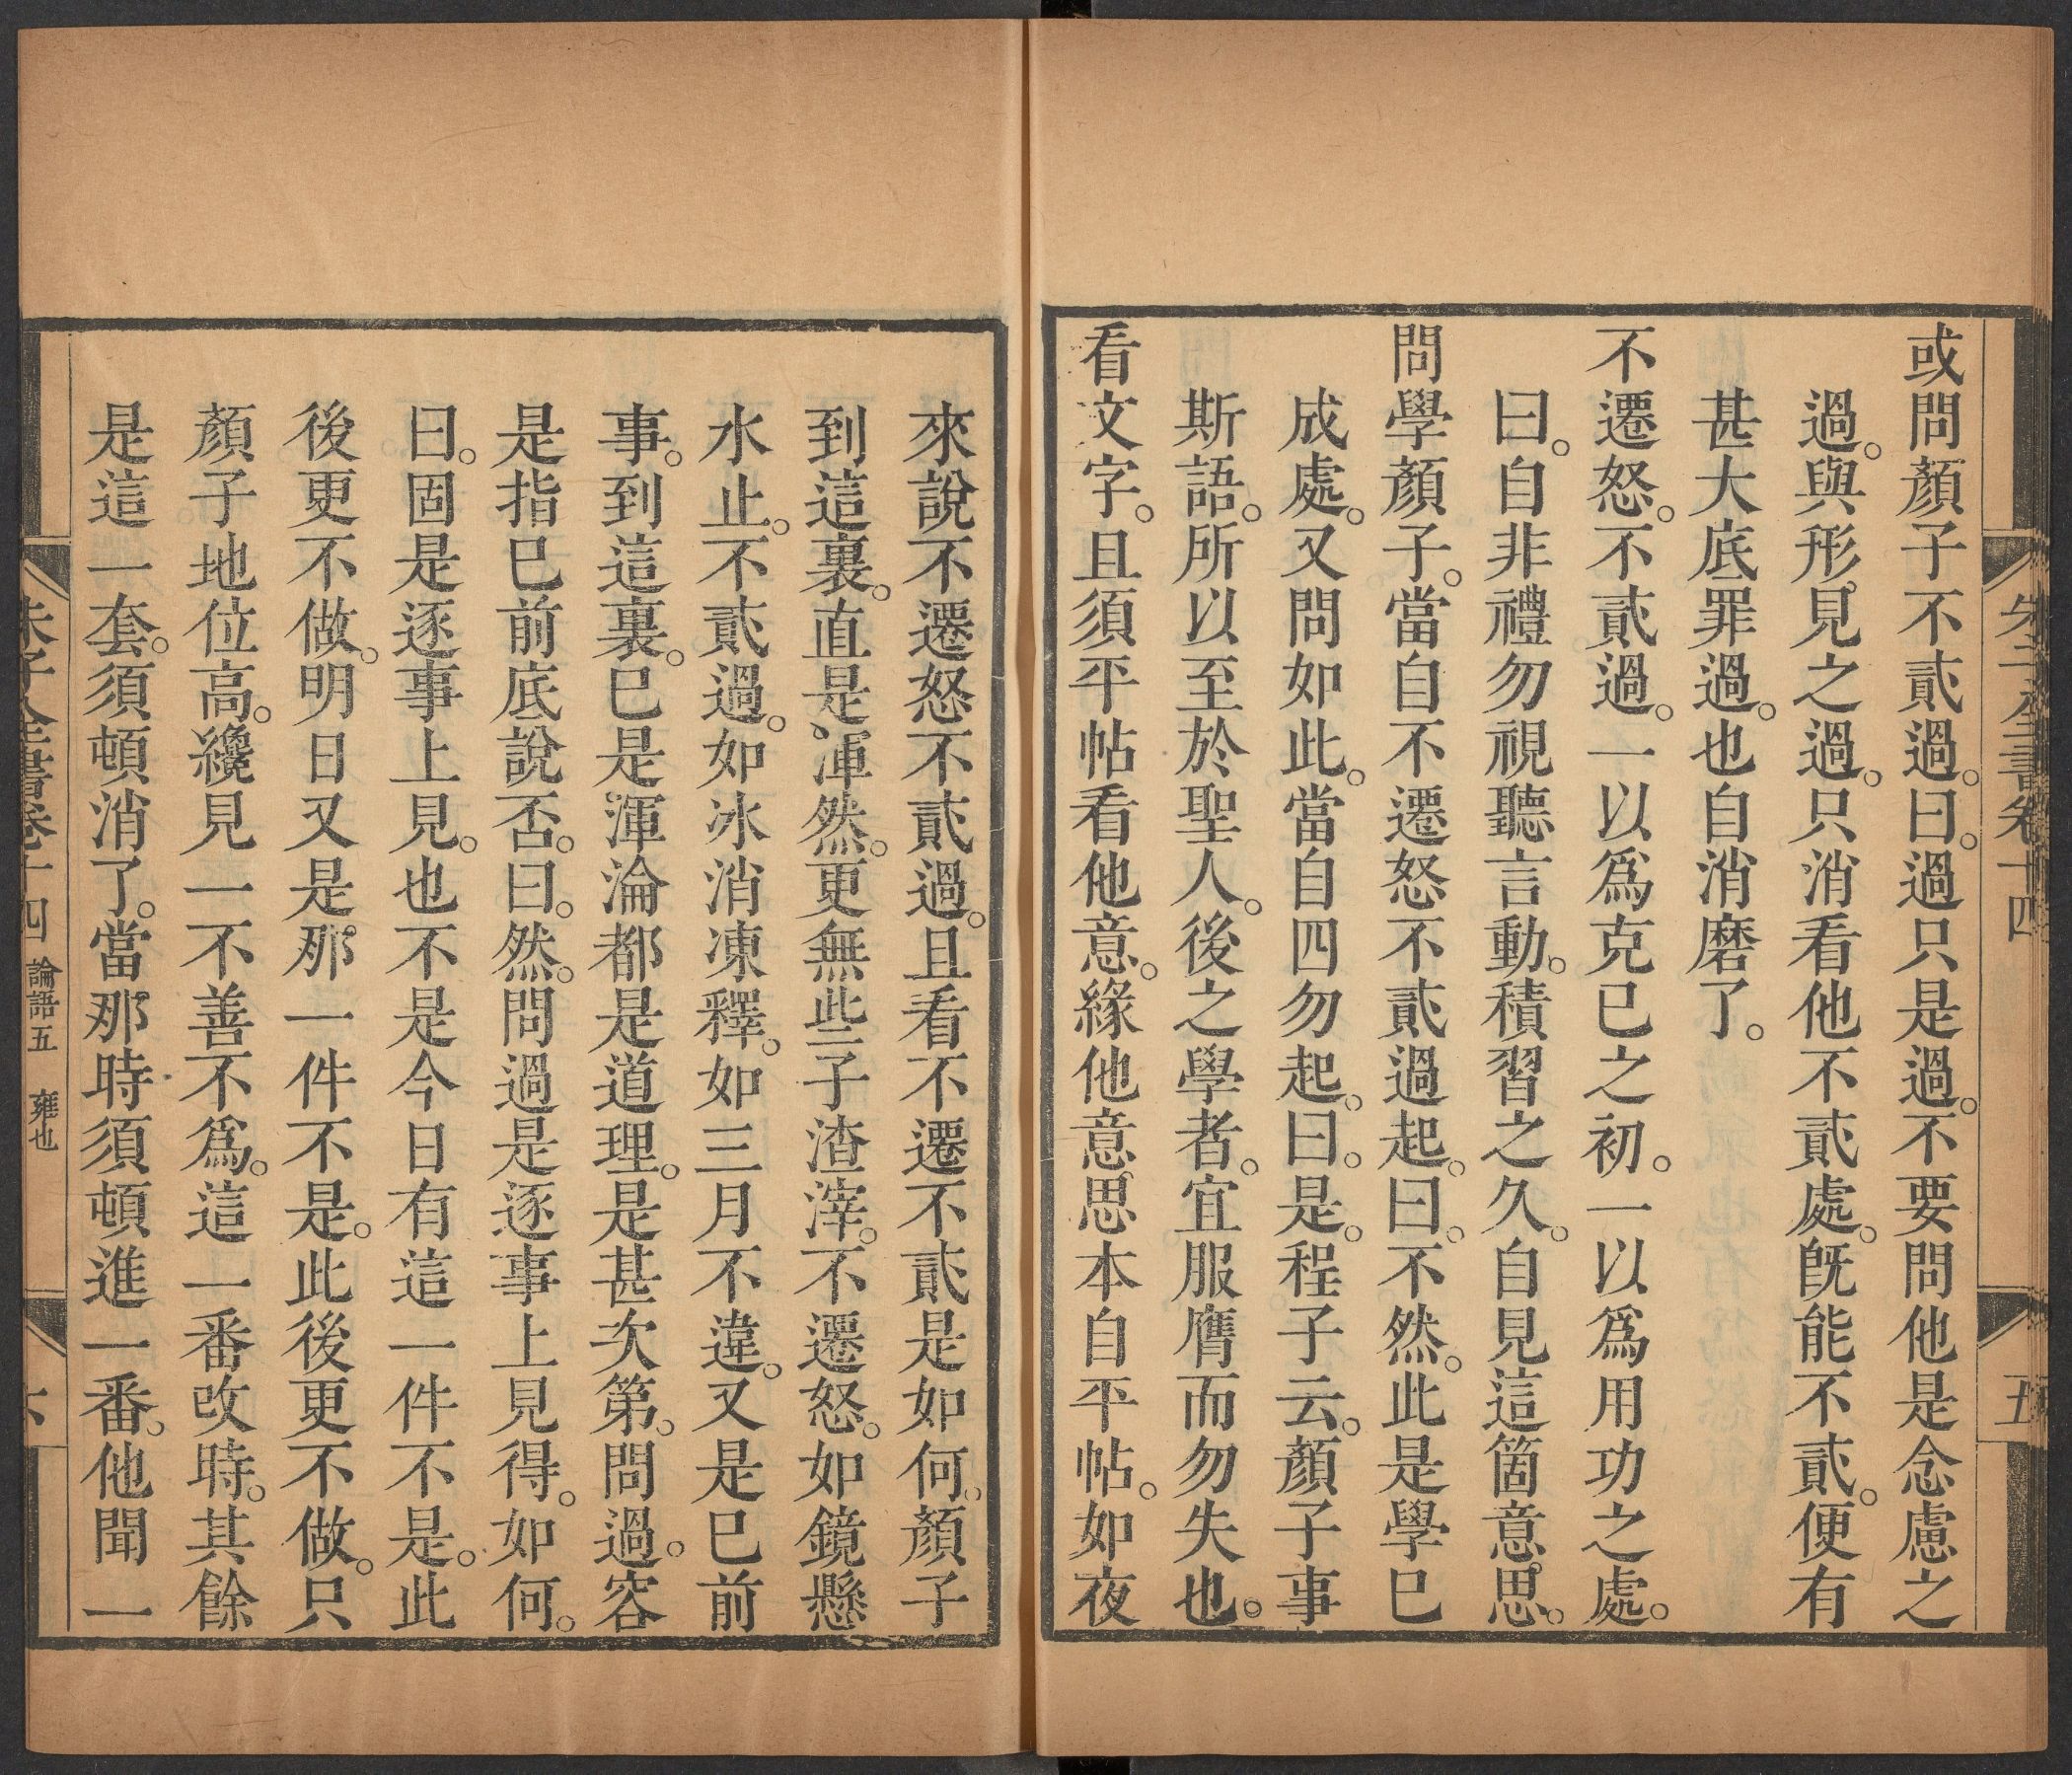 朱子全書卷十四
五
或問顏子不貳過。曰。過只是過。不要問他是念慮之
過。與形見之過。只消看他不貳處。旣能不貳。便有
甚大底罪過。也自消磨了。
不遷怒。不貳過。一以爲克已之初。一以爲用功之處。
曰。自非禮勿視聽言動。積習之久。自見這箇意思。
問學顏子。當自不遷怒不貳過起。曰。不然。此是學已
成處。又問如此。當自四勿起。曰。是。程子云。顏子事
斯語。所以至於聖人。後之學者。宜服膺而勿失也。
看文字。且須平帖看他意。緣他意思本自平帖。如夜
來說不遷怒不貳過。且看不遷不貳是如何。顏子
到這裏。直是渾然。更無些子渣滓。不遷怒。如鏡懸
水止。不貳過。如冰消凍釋。如三月不違。又是已前
事。到這裏。已是渾淪都是道理。是甚次第。問過。容
是指已前底說否。曰。然。問過是逐事上見得。如何。
曰。固是逐事上見。也不是今日有這一件不是。此
後更不做。明日又是那一件不是。此後更不做。只
顏子地位高。纔見一不善不爲。這一番改時。其餘
是這一套。須頓消了。當那時須頓進一番。他聞一
朱子全書卷十四 論語五 雍也
六